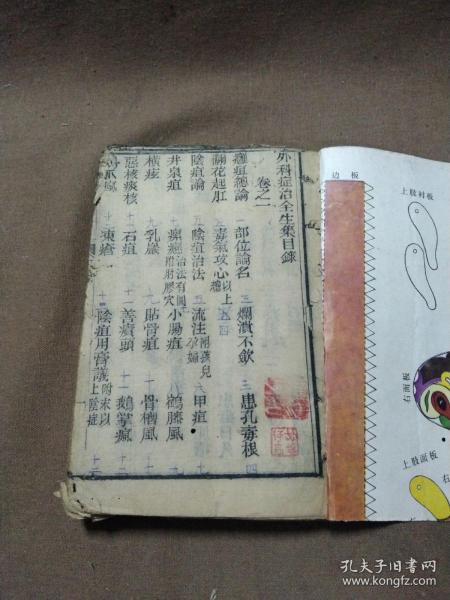 外科症治全生集目錄
卷之一
癰疽總論 一 部位論名 三 爛潰不歛 三 患孔毒根 四
翻花起肛 毒氣攻心 以上癰 四
陰疽論 五 陰疽治法 五 流注 附孩兒孕婦 六 甲疽
井泉疽 瘰癧 治法有圖附肘膠穴 小腸疽 鶴膝風
橫痃 九 乳巖 九 貼骨疽 骨槽風
惡核痰核 十 石疽 十一 善瘡頭 十一 鵝掌瘋
凍瘡 十 陰疽用膏議 附末以上陰症 十二
边 板
上肢衬板
右面板
上肢面板
右
孔夫子旧书网
www.kongfz.com